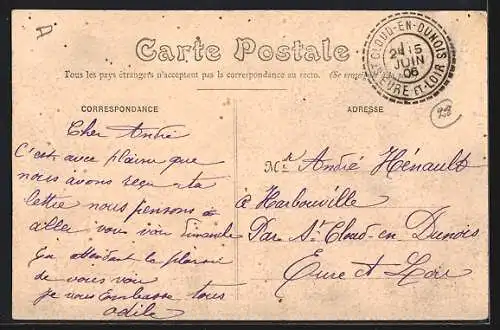 Carte Postale
Tous les pays étrangers n'acceptent pas la correspondance au recto. (Se
CORRESPONDANCE
Cher André
C'est avec plaisire que
nous avons reçu ta
lettre nous pensons à
alle vous voir Dimanche
En attendant le plaisir
de vous voir
Je vous Embrasse tous
Odile
ADRESSE
Mr André Hénault
à Harbouville
Par St Cloud-en Dunois
Eure et Loir
ST CLOUD-EN-DUNOIS
15
JUIN
06
EURE ET LOIR